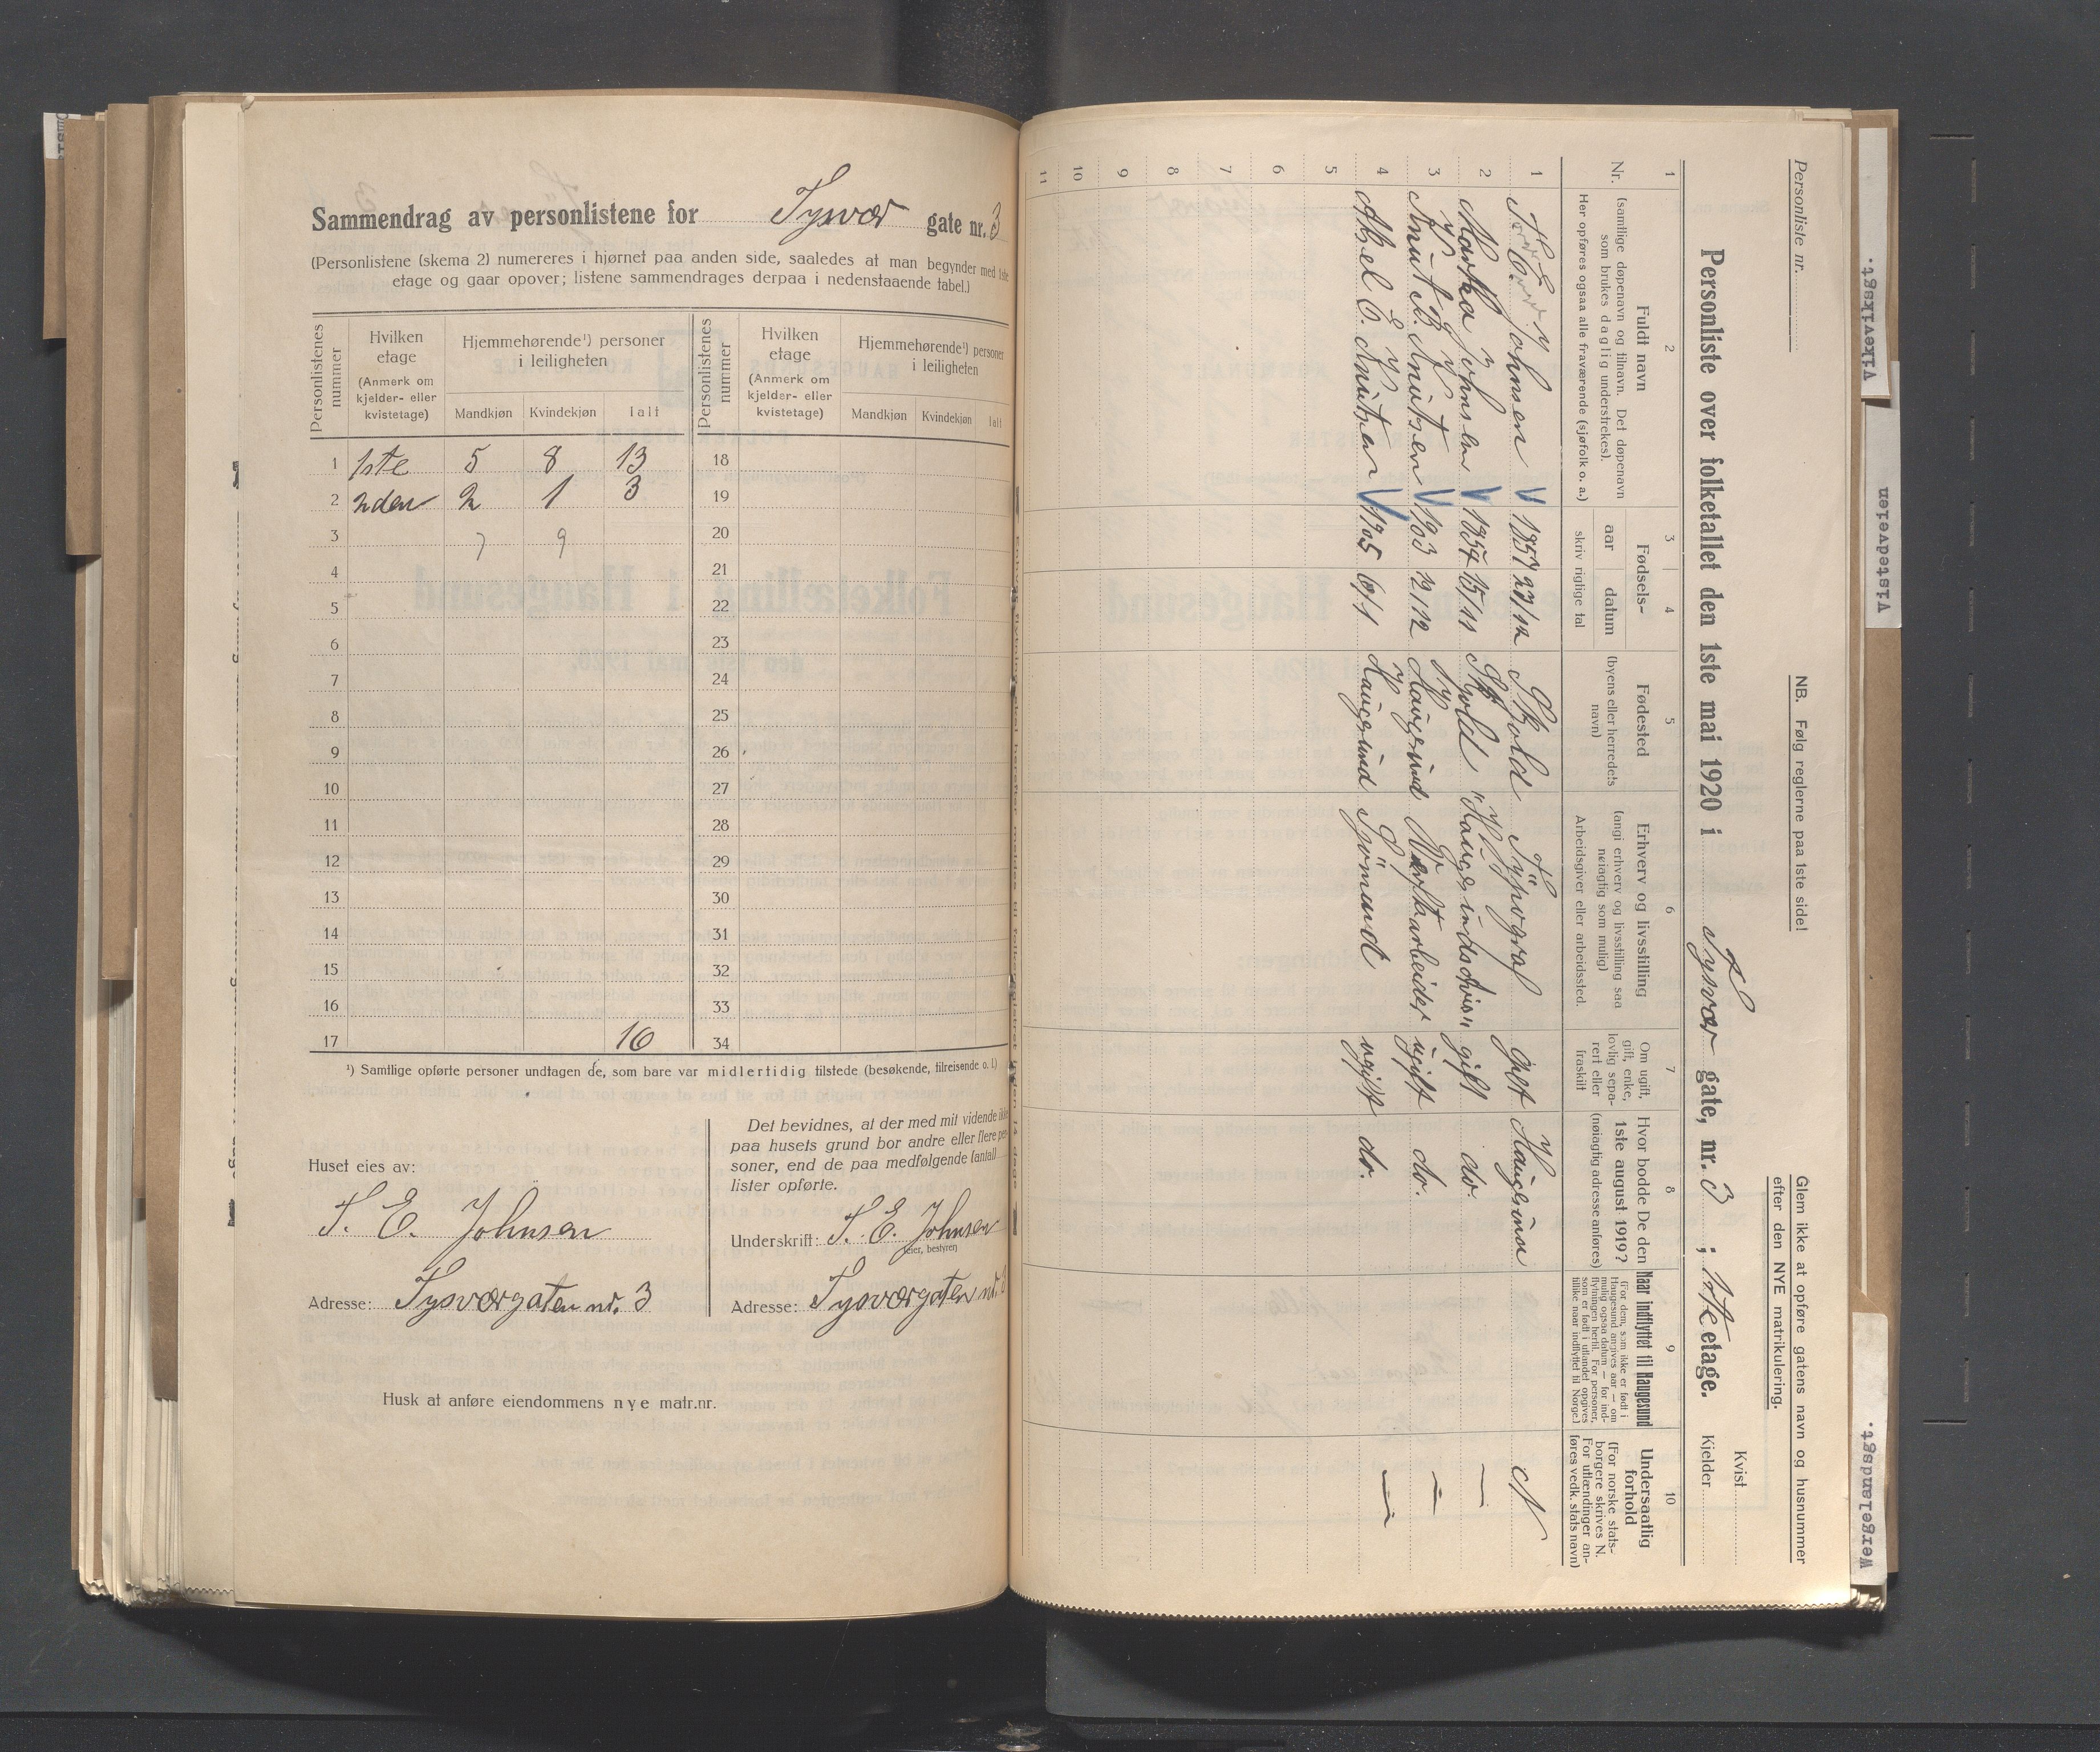 Sammendrag av personlistene for Tysvær gate nr. 3
(Personlistene (skema 2) numereres i hjørnet paa anden side, saaledes at man begynder med 1ste
etage og gaar opover; listene sammendrages derpaa i nedenstaaende tabel.)
Personlistenes nummer
Hvilken etage (Anmerk om kjelder- eller kvistetage)
Hjemmehørende¹) personer i leiligheten
Mandkjøn Kvindekjøn Ialt
Personlistenes nummer
Hvilken etage (Anmerk om kjelder- eller kvistetage)
Hjemmehørende¹) personer i leiligheten
Mandkjøn Kvindekjøn Ialt
1 1ste 5 8 13 18
2 2den 2 1 3 19
3 7 9 20
4 21
5 22
6 23
7 24
8 25
9 26
10 27
11 28
12 29
13 30
14 31
15 32
16 33
17 16 34
¹) Samtlige opførte personer undtagen de, som bare var midlertidig tilstede (besøkende, tilreisende o. l.)
Huset eies av:
T. E. Johnsen
Adresse: Tysværgaten nr. 3
Det bevidnes, at der med mit vidende ikke
paa husets grund bor andre eller flere per-
soner, end de paa medfølgende (antal)
lister opførte.
Underskrift: T. E. Johnsen
(eier, bestyrer)
Adresse: Tysværgaten nr. 3
Husk at anføre eiendommens nye matr.nr.
Personliste nr.
NB. Følg reglerne paa 1ste side!
Glem ikke at opføre gatens navn og husnummer
efter den NYE matrikulering.
Personliste over folketallet den 1ste mai 1920 i Tysvær gate, nr. 3 ; 1ste etage.
Kvist
Kjelder
1 2 3 4 5 6 7 8 9 10
Nr.
Fuldt navn
(samtlige døpenavn og tilnavn. Det døpenavn
som brukes daglig understrekes).
Her opføres ogsaa alle fraværende (sjøfolk o. a.)
Fødsels-
aar datum
skriv rigtige tal
Fødested
(byens eller herredets
navn)
Erhverv og livsstilling
(angi erhverv og livsstilling saa
nøiagtig som mulig)
Arbeidsgiver eller arbeidssted.
Om ugift,
gift, enke,
lovlig sepa-
rert eller
fraskilt
Hvor bodde De den
1ste august 1919?
(nøiagtig adresse anføres)
Naar indflyttet til Haugesund
(For dem, som ikke er født i
Haugesund angives aar — om
mulig ogsaa datum — for ind-
flytningen hertil. For personer,
som er født i utlandet opgives
tillike naar indflyttet til Norge.)
Undersaatlig
forhold
(For norske stats-
borgere skrives N.
For utlændinger an-
føres vedk. stats navn)
1 T. E. Johnsen 1857 23/12 Skjold Typograf gift Haugesund N
2 Martha Johnsen 1854 15/11 Skjold "Haugesundsavis" gift do. —
3 Knut B. Knutsen 1903 12/12 Haugesund Verftsarbeider ugift do. —
4 Abel O. Knutsen 1905 6/1 Haugesund Sjømand ugift do. —
5
6
7
8
9
10
11
Vikeviksgt.
Vistedveien
Wergelandsgt.